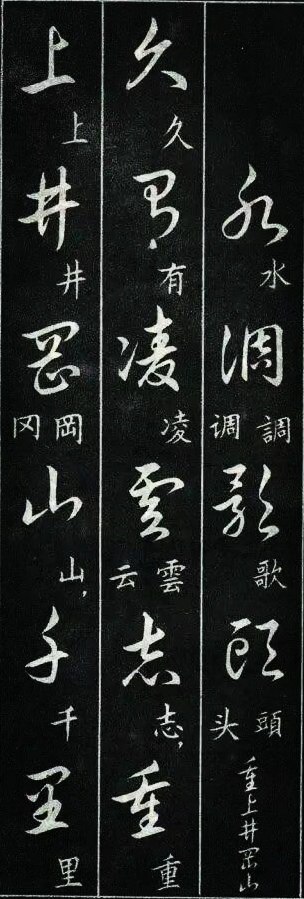 水調歌頭
水 調 调 歌 頭 头
重上井岡山
久有凌雲志重
久 有 凌 雲 云 志， 重
上井岡山千里
上 井 岡 冈 山， 千 里